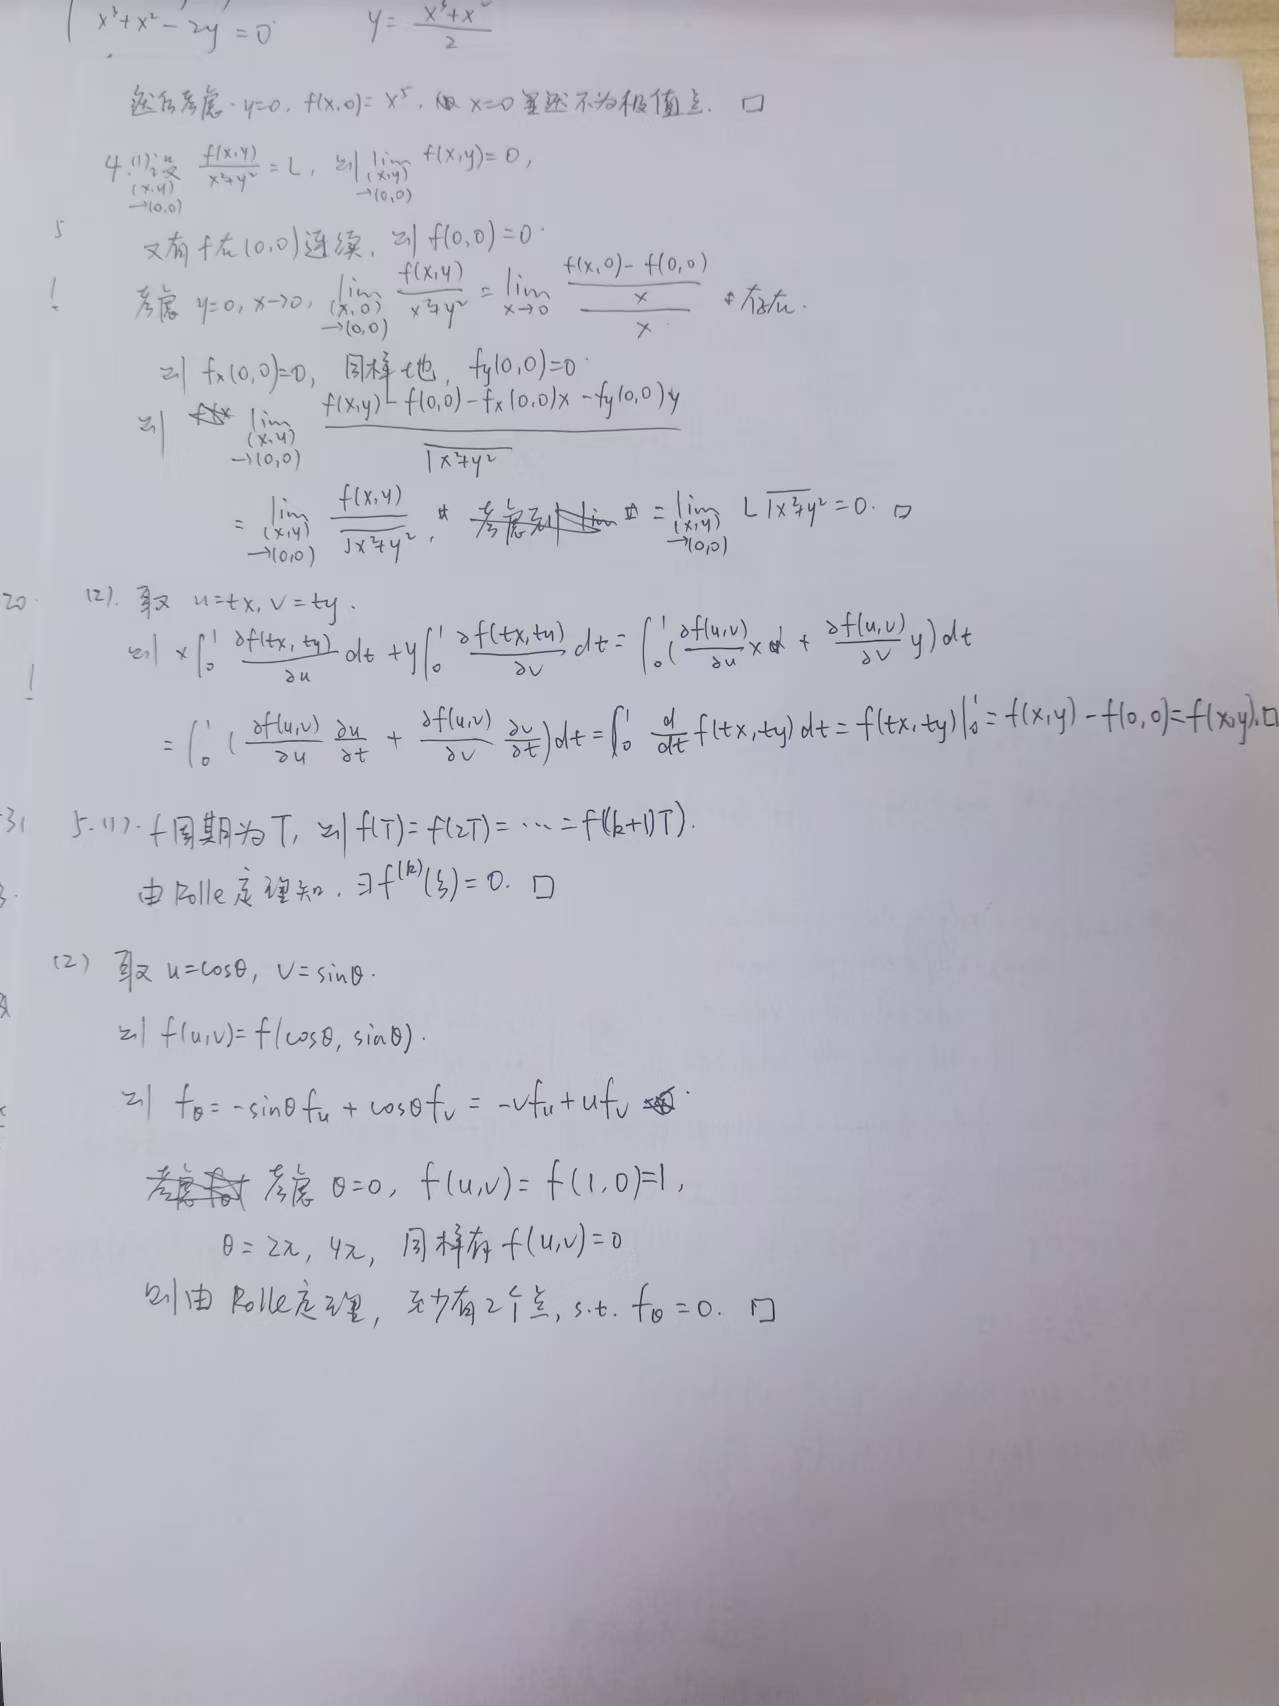 x³+x²-2y=0  y=(x³+x²)/2
考虑 y=0, f(x,0)=x⁵, x=0 显然不为极值点. □
4.(1) 设 lim_{(x,y)→(0,0)} f(x,y)/(x²+y²)=L, 则 lim_{(x,y)→(0,0)} f(x,y)=0,
5
又有 f在(0,0)连续, 则 f(0,0)=0.
!
考虑 y=0, x→0, lim_{(x,0)→(0,0)} f(x,y)/(x²+y²) = lim_{x→0} ((f(x,0)-f(0,0))/x)/x 存在.
则 fx(0,0)=0, 同样地, fy(0,0)=0.
则 lim_{(x,y)→(0,0)} (f(x,y)-f(0,0)-fx(0,0)x-fy(0,0)y)/√(x²+y²)
= lim_{(x,y)→(0,0)} f(x,y)/√(x²+y²), = lim_{(x,y)→(0,0)} L√(x²+y²)=0. □
20. (2). 取 u=tx, v=ty.
则 x∫₀¹ ∂f(tx,ty)/∂u dt + y∫₀¹ ∂f(tx,ty)/∂v dt = ∫₀¹ (∂f(u,v)/∂u x + ∂f(u,v)/∂v y)dt
!
= ∫₀¹ (∂f(u,v)/∂u ∂u/∂t + ∂f(u,v)/∂v ∂v/∂t)dt = ∫₀¹ d/dt f(tx,ty)dt = f(tx,ty)|₀¹ = f(x,y)-f(0,0)=f(x,y). □
5.(1). f周期为T, 则 f(T)=f(2T)=⋯=f((k+1)T).
由Rolle定理知, ∃f^(k)(ξ)=0. □
(2) 取 u=cosθ, v=sinθ.
则 f(u,v)=f(cosθ, sinθ).
则 fθ=-sinθfu+cosθfv=-vfu+ufv.
考虑 θ=0, f(u,v)=f(1,0)=1,
θ=2π, 4π, 同样有 f(u,v)=0
则由Rolle定理, 至少有2个点, s.t. fθ=0. □